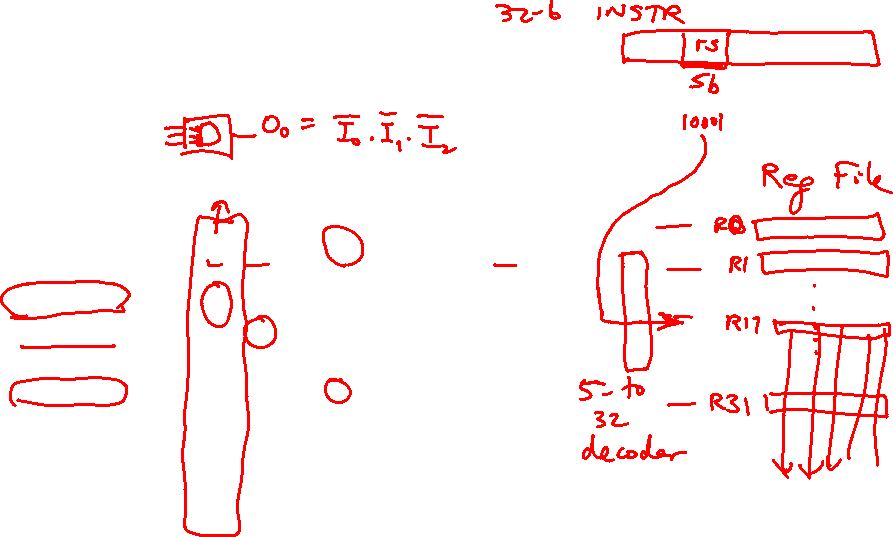 32-b INSTR
rs
5b
10001
O₀ = I̅₀ . I̅₁ . I̅₂
Reg File
R0
R1
R17
R31
5-to
32
decoder